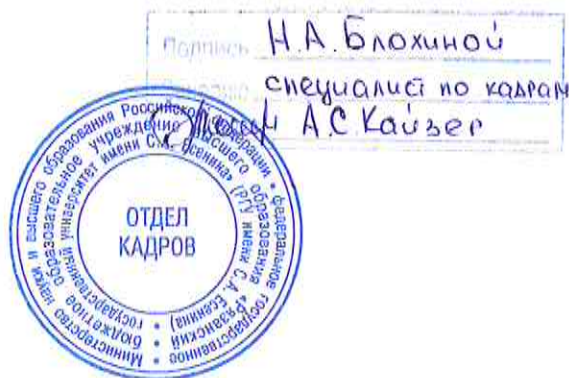 Подпись Н.А. Блохиной
специалист по кадрам
А.С. Кайзер
Министерство науки и высшего образования Российской Федерации • федеральное государственное
бюджетное образовательное учреждение высшего образования «Рязанский
государственный университет имени С.А. Есенина» (РГУ имени С.А. Есенина)
ОТДЕЛ
КАДРОВ